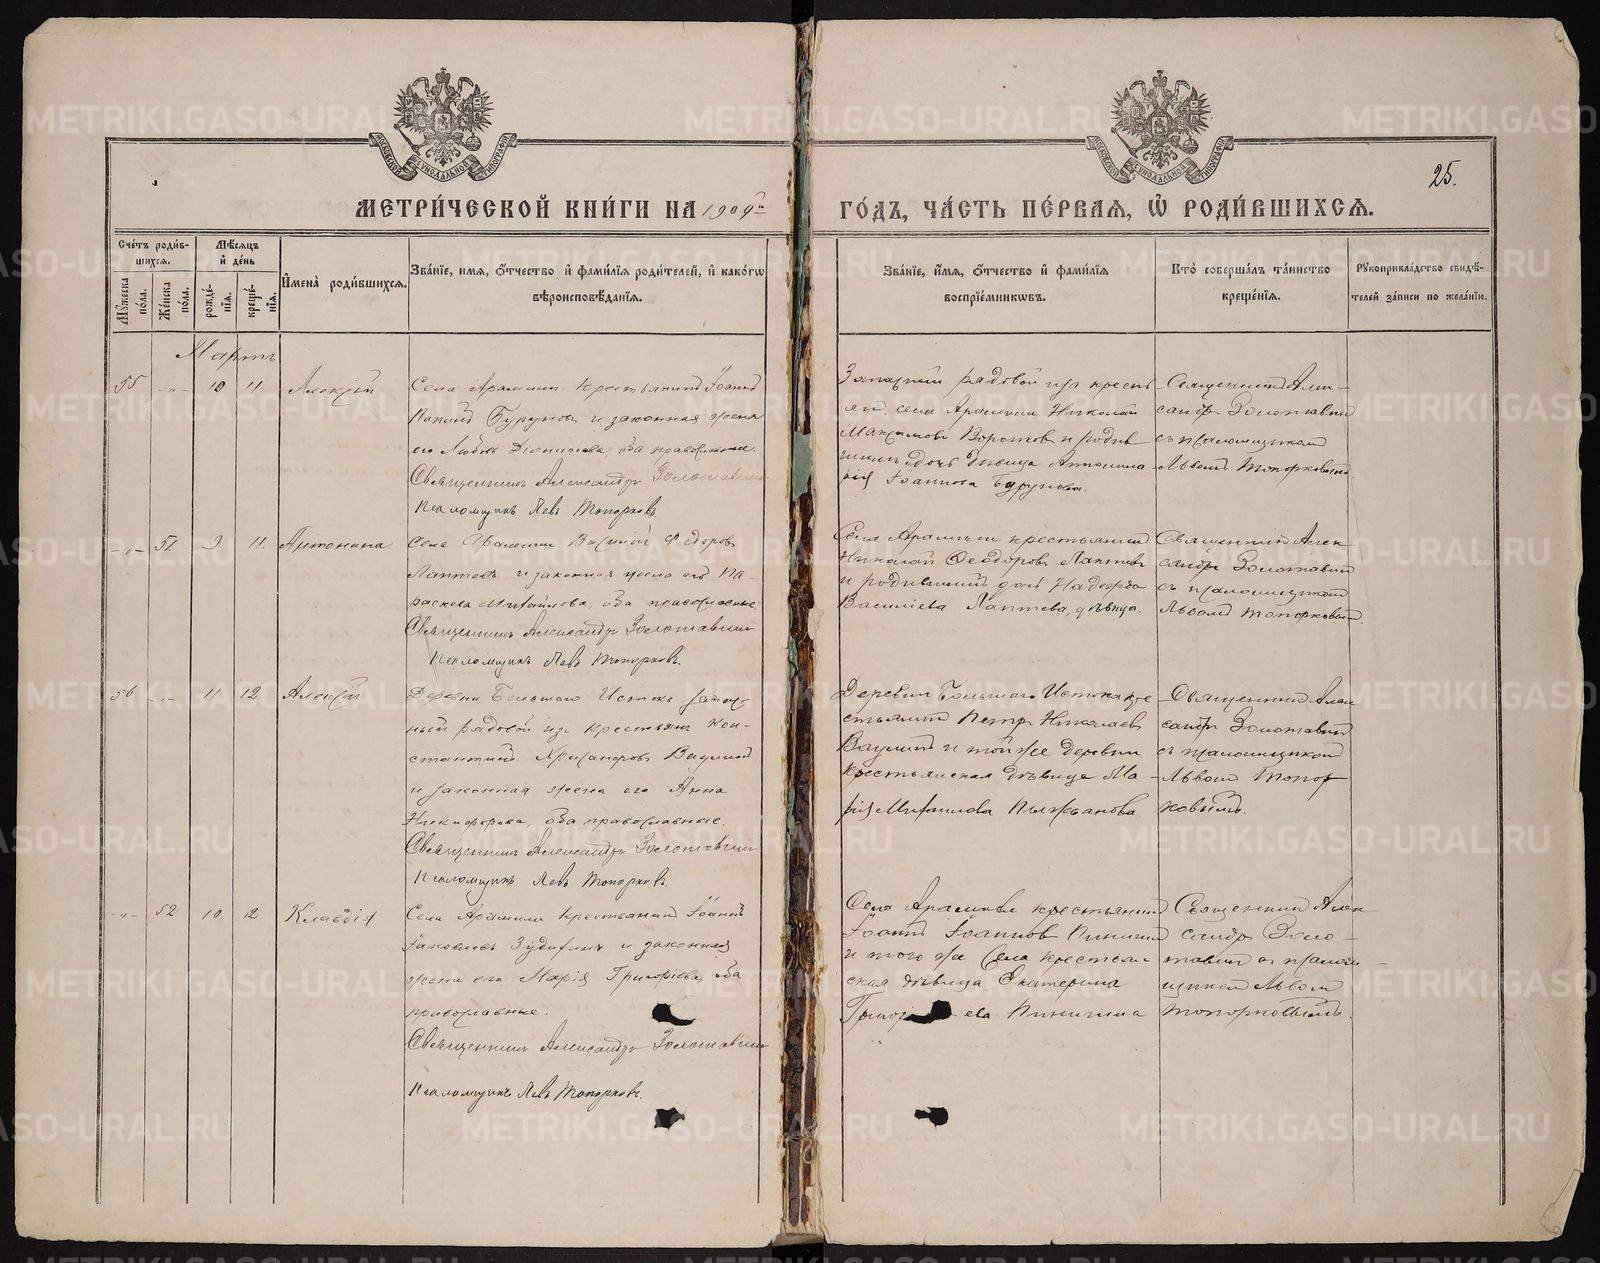 МЕТРИ́ЧЕСКОЙ КНИ́ГИ НА 1909й
ГО́ДЪ, ЧА́СТЬ ПЕ́РВАЯ, Ѽ РОДИ́ВШИХСЯ.
25.
МОСКОВСКОЙ СѴНОДАЛЬНОЙ ТИПОГРАФІИ
МОСКОВСКОЙ СѴНОДАЛЬНОЙ ТИПОГРАФІИ
Сче́тъ роди́в-
шихся.
Мѣ́сяцъ
и҆ де́нь
Мꙋ́жеска по́ла.
Же́нска по́ла.
рожде́-
нїя.
креще́-
нїя.
И҆мена̀ роди́вшихся.
Зва́нїе, и҆мя, ѻ҆́тчество и҆ фами́лїя роди́телей, и҆ како́гѡ
вѣроисповѣ́данїя.
Зва́нїе, и҆́мя, ѻ҆́тчество и҆ фами́лїя
воспрїе́мникѡвъ.
Кто̀ соверша́лъ та́инство
креще́нїя.
Рꙋкоприкла́дство свидѣ́-
телей за́писи по жела́нїю.
Мартъ
55 -"- 10 11 Алексѣй
Села Арамили крестьянинъ Іоаннъ
Буруновъ и законная жена
его Любовь Діонисіева, оба православные.
Священникъ Александръ Золотавинъ
Псаломщикъ Левъ Топорковъ
Запасный рядовой изъ кресть-
янъ села Арамили Николай
Максимовъ Воротовъ и родив
шихъ дочь дѣвица Антонина
Іоаннова Бурунова.
Священникъ Алек-
сандръ Золотавинъ
съ псаломщикомъ
Львомъ Топорковымъ
-"- 51 9 11 Антонина
Села Арамили Василій Ѳедоровъ
Лаптевъ и законная жена его Па-
раскева Михайлова, оба православные.
Священникъ Александръ Золотавинъ
Псаломщикъ Левъ Топорковъ.
Села Арамили крестьянинъ
Николай Ѳеодоровъ Лаптевъ
и родившихъ дочь Надежда
Василіева Лаптева, дѣвица.
Священникъ Алек
сандръ Золотавинъ
съ псаломщикомъ
Львомъ Топорковымъ.
56 -"- 11 12 Алексѣй
Деревни Большаго Истока запас-
ный рядовой изъ крестьянъ Кон-
стантинъ Хрисанфовъ Ваулинъ
и законная жена его Анна
Никифорова, оба православные.
Священникъ Александръ Золотавинъ
Псаломщикъ Левъ Топорковъ.
Деревни Большаго Истока кре
стьянинъ Петръ Николаевъ
Ваулинъ и той же деревни
крестьянская дѣвица Ма-
рія Михаилова Пильжанова
Священникъ Алек
сандръ Золотавинъ
съ псаломщикомъ
Львомъ Топор
ковымъ.
-"- 52 10 12 Клавдія
Села Арамили крестьянинъ Іоаннъ
Іаковлевъ и законная
жена его Марія Григоріева, оба
православные.
Священникъ Александръ Золотавинъ
Псаломщикъ Левъ Топорковъ.
Села Арамили крестьянинъ
Іоаннъ Іоанновъ Пинигинъ
и того же села крестьян
ская дѣвица Екатерина
Григор ева Пинигина
Священникъ Алек
сандръ Золо-
тавинъ съ псалом-
щикомъ Львомъ
Топорковымъ.
METRIKI.GASO-URAL.RU